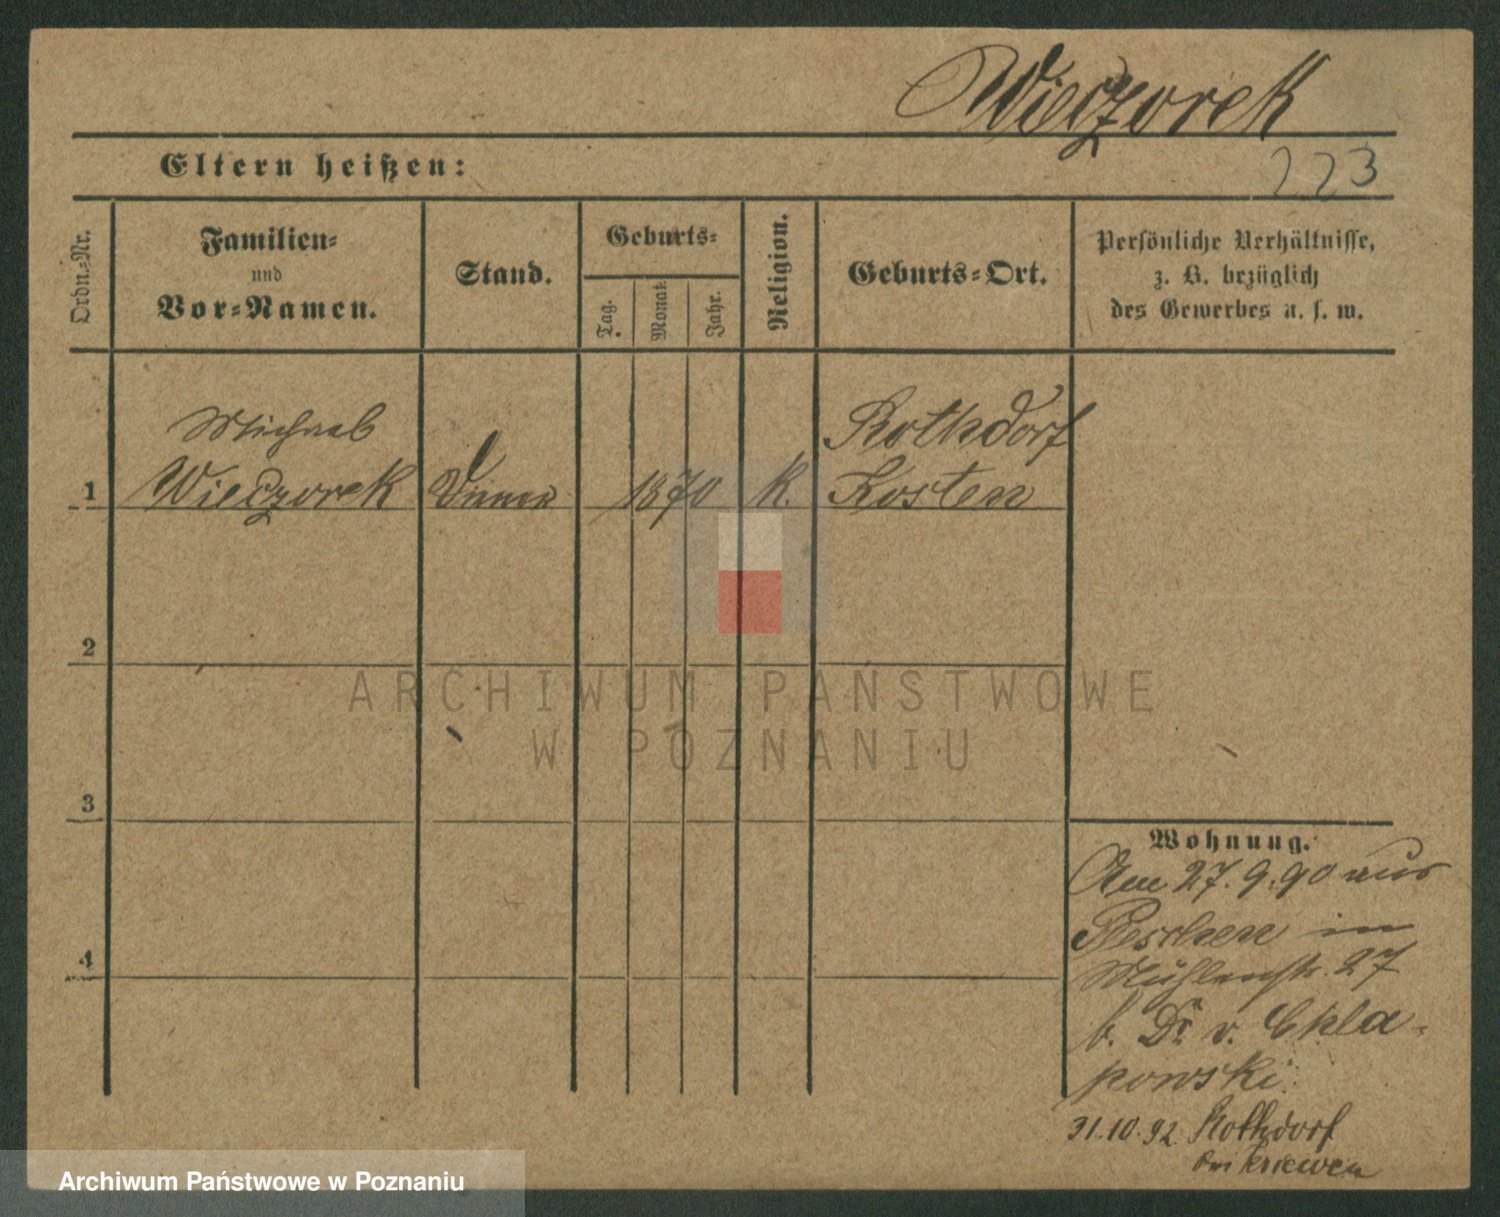 Wieczorek
Eltern heißen:
223
Ordn.-Nr.
Familien-
und
Vor-Namen.
Stand.
Geburts-
Tag.
Monat.
Jahr.
Religion.
Geburts-Ort.
Persönliche Verhältnisse,
z. B. bezüglich
des Gewerbes u. s. w.
Michael
Rothdorf
1 Wieczorek Diener 1870 K. Kosten
2
ARCHIWUM PAŃSTWOWE
W POZNANIU
3
Wohnung.
Am 27.9.90 aus
4
Mühlenstr. 27
b. Dr. v. Chla-
powski
31.10.92 Rothdorf
bei Kriewen
Archiwum Państwowe w Poznaniu